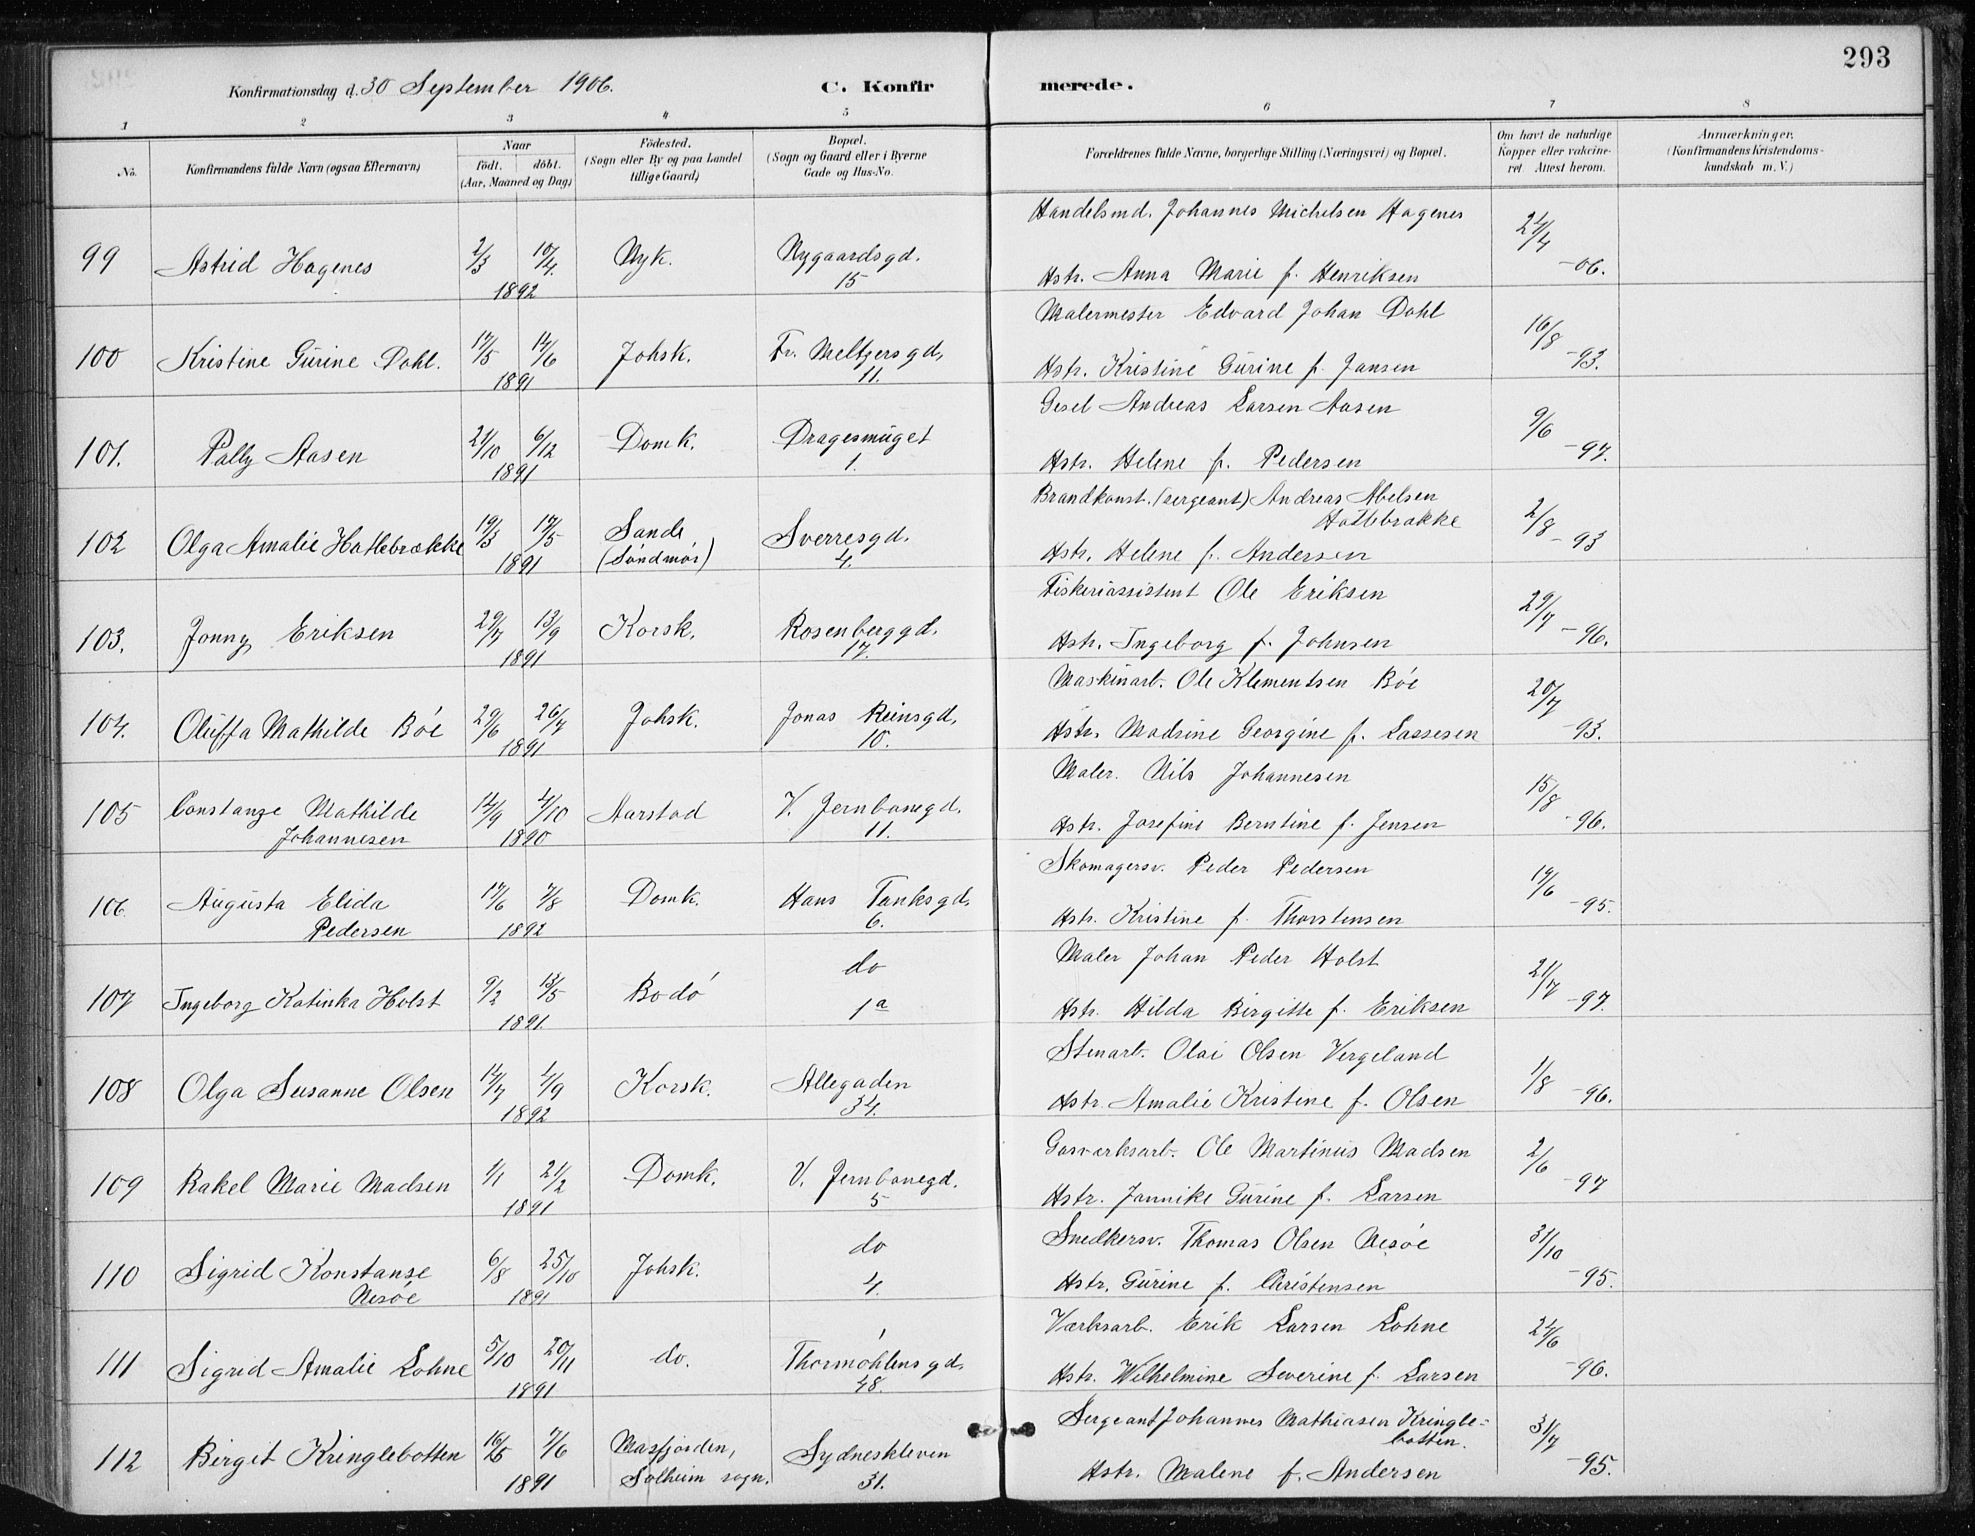 293
Konfirmationsdag d. 30 September 1906.
C. Konfirmerede.
1 2 3 4 5 6 7 8
No. Konfirmandens fulde Navn (ogsaa Efternavn) Naar födt. döbt. (Aar, Maaned og Dag) Födested. (Sogn eller By og paa Landet tillige Gaard) Bopæl. (Sogn og Gaard eller i Byerne Gade og Hus-No. Forældrenes fulde Navne, borgerlige Stilling (Næringsvei) og Bopæl. Om havt de naturlige Kopper eller vakcineret. Attest herom. Anmærkninger. (Konfirmandens Kristendomskundskab m. V.)
Handelsmd. Johannes Michelsen Hagenes
99 Astrid Hagenes 2/3 10/4 1892 Nyk. Nygaardsgd. 15 24/4 -06.
Hstr. Anna Marie f. Henriksen
Malermester Edvard Johan Dahl
100 Kristine Gurine Dahl. 17/5 14/6 1891 Johsk. Fr. Meltzersgd, 11. 16/8 -93.
Hstr. Kristine Gurine f. Jansen
Gesel Andreas Larsen Aasen
101. Pally Aasen 21/10 6/12 1891 Domk. Dragesmuget 1. 9/6 -97.
Hstr. Helene f. Pedersen
Brandkonst. (sergeant) Andreas Abelsen
Hatlebrække
102 Olga Amalie Hatlebrække 19/3 17/5 1891 Sande (Söndmör) Sverresgd. 4. 2/8 -93
Hstr. Helene f. Andersen
Fiskeriassistent Ole Eriksen
103. Jonny Eriksen 29/7 13/9 1891 Korsk. Rosenberggd. 17. 29/7 -96.
Hstr. Ingeborg f. Johnsen
Maskinarb. Ole Klementsen Böe
104. Oluffa Mathilde Böe 29/6 26/7 1891 Johsk. Jonas Reinsgd, 10. 20/7 -93.
Hstr. Madsine Georgine f. Lassesen
Maler. Nils Johannesen
105 Constanze Mathilde 14/9 4/10 Aarstad V. Jernbanegd. 15/8
Johannesen 1890 11. -96.
Hstr. Josefine Berntine f. Jensen
Skomagersv. Peder Pedersen
106. Augusta Elida 17/6 7/8 Domk. Hans Tanksgd, 19/6
Pedersen 1892 6. -95.
Hstr. Kristine f. Thorstensen
Maler Johan Peder Holst
107 Ingeborg Katinka Holst 9/2 13/5 1891. Bodö do 1a 21/7 -97.
Hstr. Hilda Birgitte f. Eriksen
Stenarb. Olai Olsen Vergeland
108 Olga Susanne Olsen 14/7 4/9 1892 Korsk. Allegaden 34. 1/8 -96.
Hstr. Amalie Kristine f. Olsen
Gasværksarb. Ole Martinus Madsen
109 Rakel Marie Madsen 1/1 21/2 1891 Domk. V. Jernbanegd. 5 2/6 -97
Hstr. Jannike Gurine f. Larsen
Snedkersv. Thomas Olsen Nesöe
110 Sigrid Konstanse 6/8 25/10 Johsk. do 31/10
Nesöe 1891 4. -95.
Hstr. Gurine f. Christensen
Værksarb. Erik Larsen Lohne
111 Sigrid Amalie Lohne 5/10 20/11 1891 do. Thormöhlensgd, 48. 24/6 -96.
Hstr. Wilhelmine Severine f. Larsen
Sergeant Johannes Mathiasen Kringle-
botten.
112 Birgit Kringlebotten 16/5 7/6 1891 Masfjorden, Solheim sogn. Sydneskleven 31. 31/7 -95.
Hstr. Malene f. Andersen